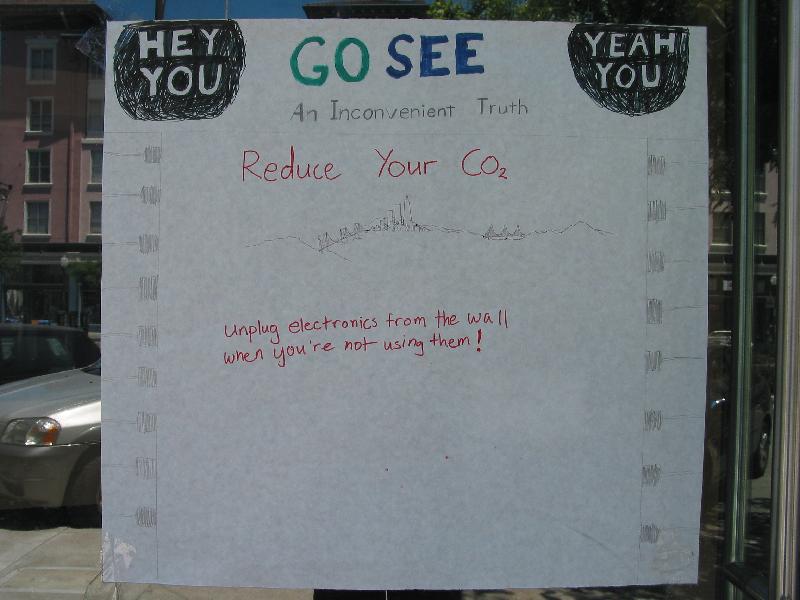 HEY YOU
GO SEE
YEAH YOU
An Inconvenient Truth
Reduce Your CO₂
unplug electronics from the wall
when you're not using them!